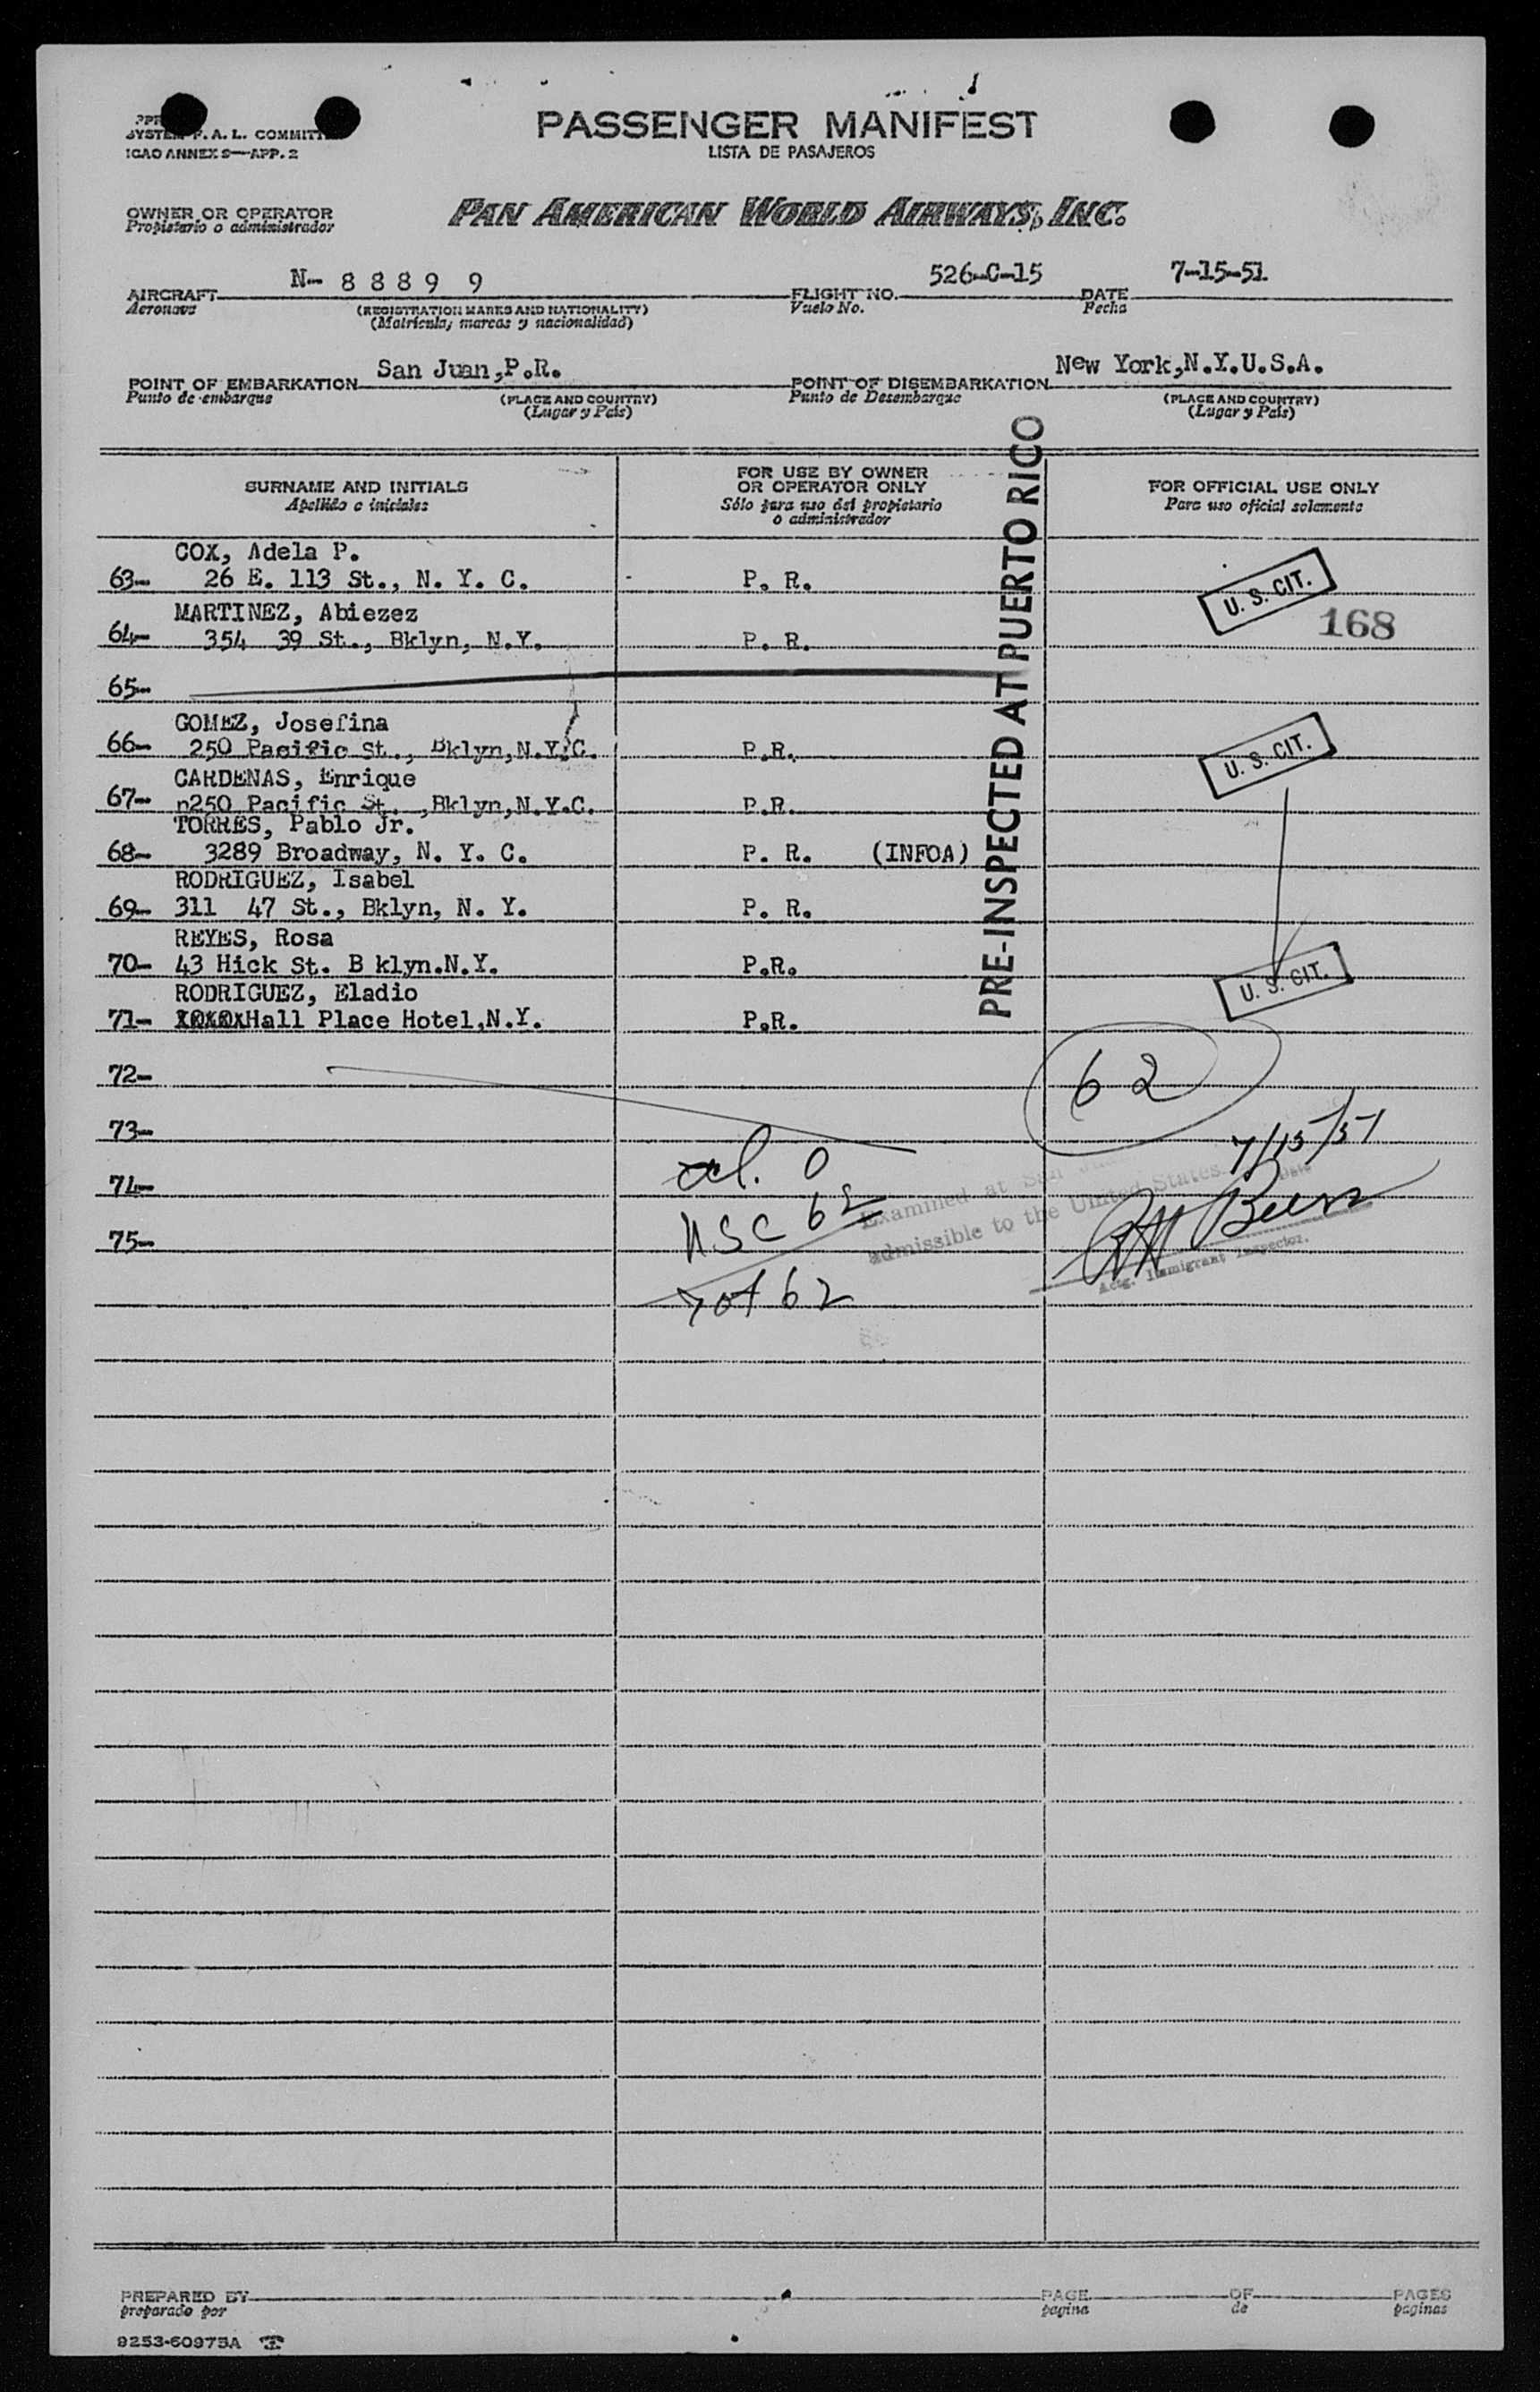 SYSTEM F. A. L. COMMITT
ICAO ANNEX 9—APP. 2
PASSENGER MANIFEST
LISTA DE PASAJEROS
OWNER OR OPERATOR
Propietario o administrador
PAN AMERICAN WORLD AIRWAYS, INC.
AIRCRAFT N- 8 8 8 9 9 FLIGHT NO. 526-C-15 DATE 7-15-51
Aeronave (REGISTRATION MARKS AND NATIONALITY) Vuelo No. Fecha
(Matrícula, marcas y nacionalidad)
POINT OF EMBARKATION San Juan,P.R. POINT OF DISEMBARKATION New York,N.Y.U.S.A.
Punto de embarque (PLACE AND COUNTRY) Punto de Desembarque (PLACE AND COUNTRY)
(Lugar y País) (Lugar y País)
SURNAME AND INITIALS
Apellido e iniciales
FOR USE BY OWNER
OR OPERATOR ONLY
Sólo para uso del propietario
o administrador
FOR OFFICIAL USE ONLY
Para uso oficial solamente
PRE-INSPECTED AT PUERTO RICO
COX, Adela P.
63- 26 E. 113 St., N. Y. C. P. R. U. S. CIT.
MARTINEZ, Abiezez
64- 354 39 St., Bklyn, N.Y. P. R. 168
65-
GOMEZ, Josefina
66- 250 Pacific St., Bklyn,N.Y.C. P.R. U. S. CIT.
CARDENAS, Enrique
67- n250 Pacific St. ,Bklyn,N.Y.C. P.R.
TORRES, Pablo Jr.
68- 3289 Broadway, N. Y. C. P. R. (INFOA)
RODRIGUEZ, Isabel
69- 311 47 St., Bklyn, N. Y. P. R.
REYES, Rosa
70- 43 Hick St. B klyn.N.Y. P.R. U. S. CIT.
RODRIGUEZ, Eladio
71- Hall Place Hotel,N.Y. P.R.
72- 62
73- 7/15/51
74- al. 0
Examined at San Juan
Date
75- USC 62
admissible to the United States
Actg. Immigrant Inspector.
Tot 62
PREPARED BY PAGE OF PAGES
preparado por pagina de paginas
9253-60975A